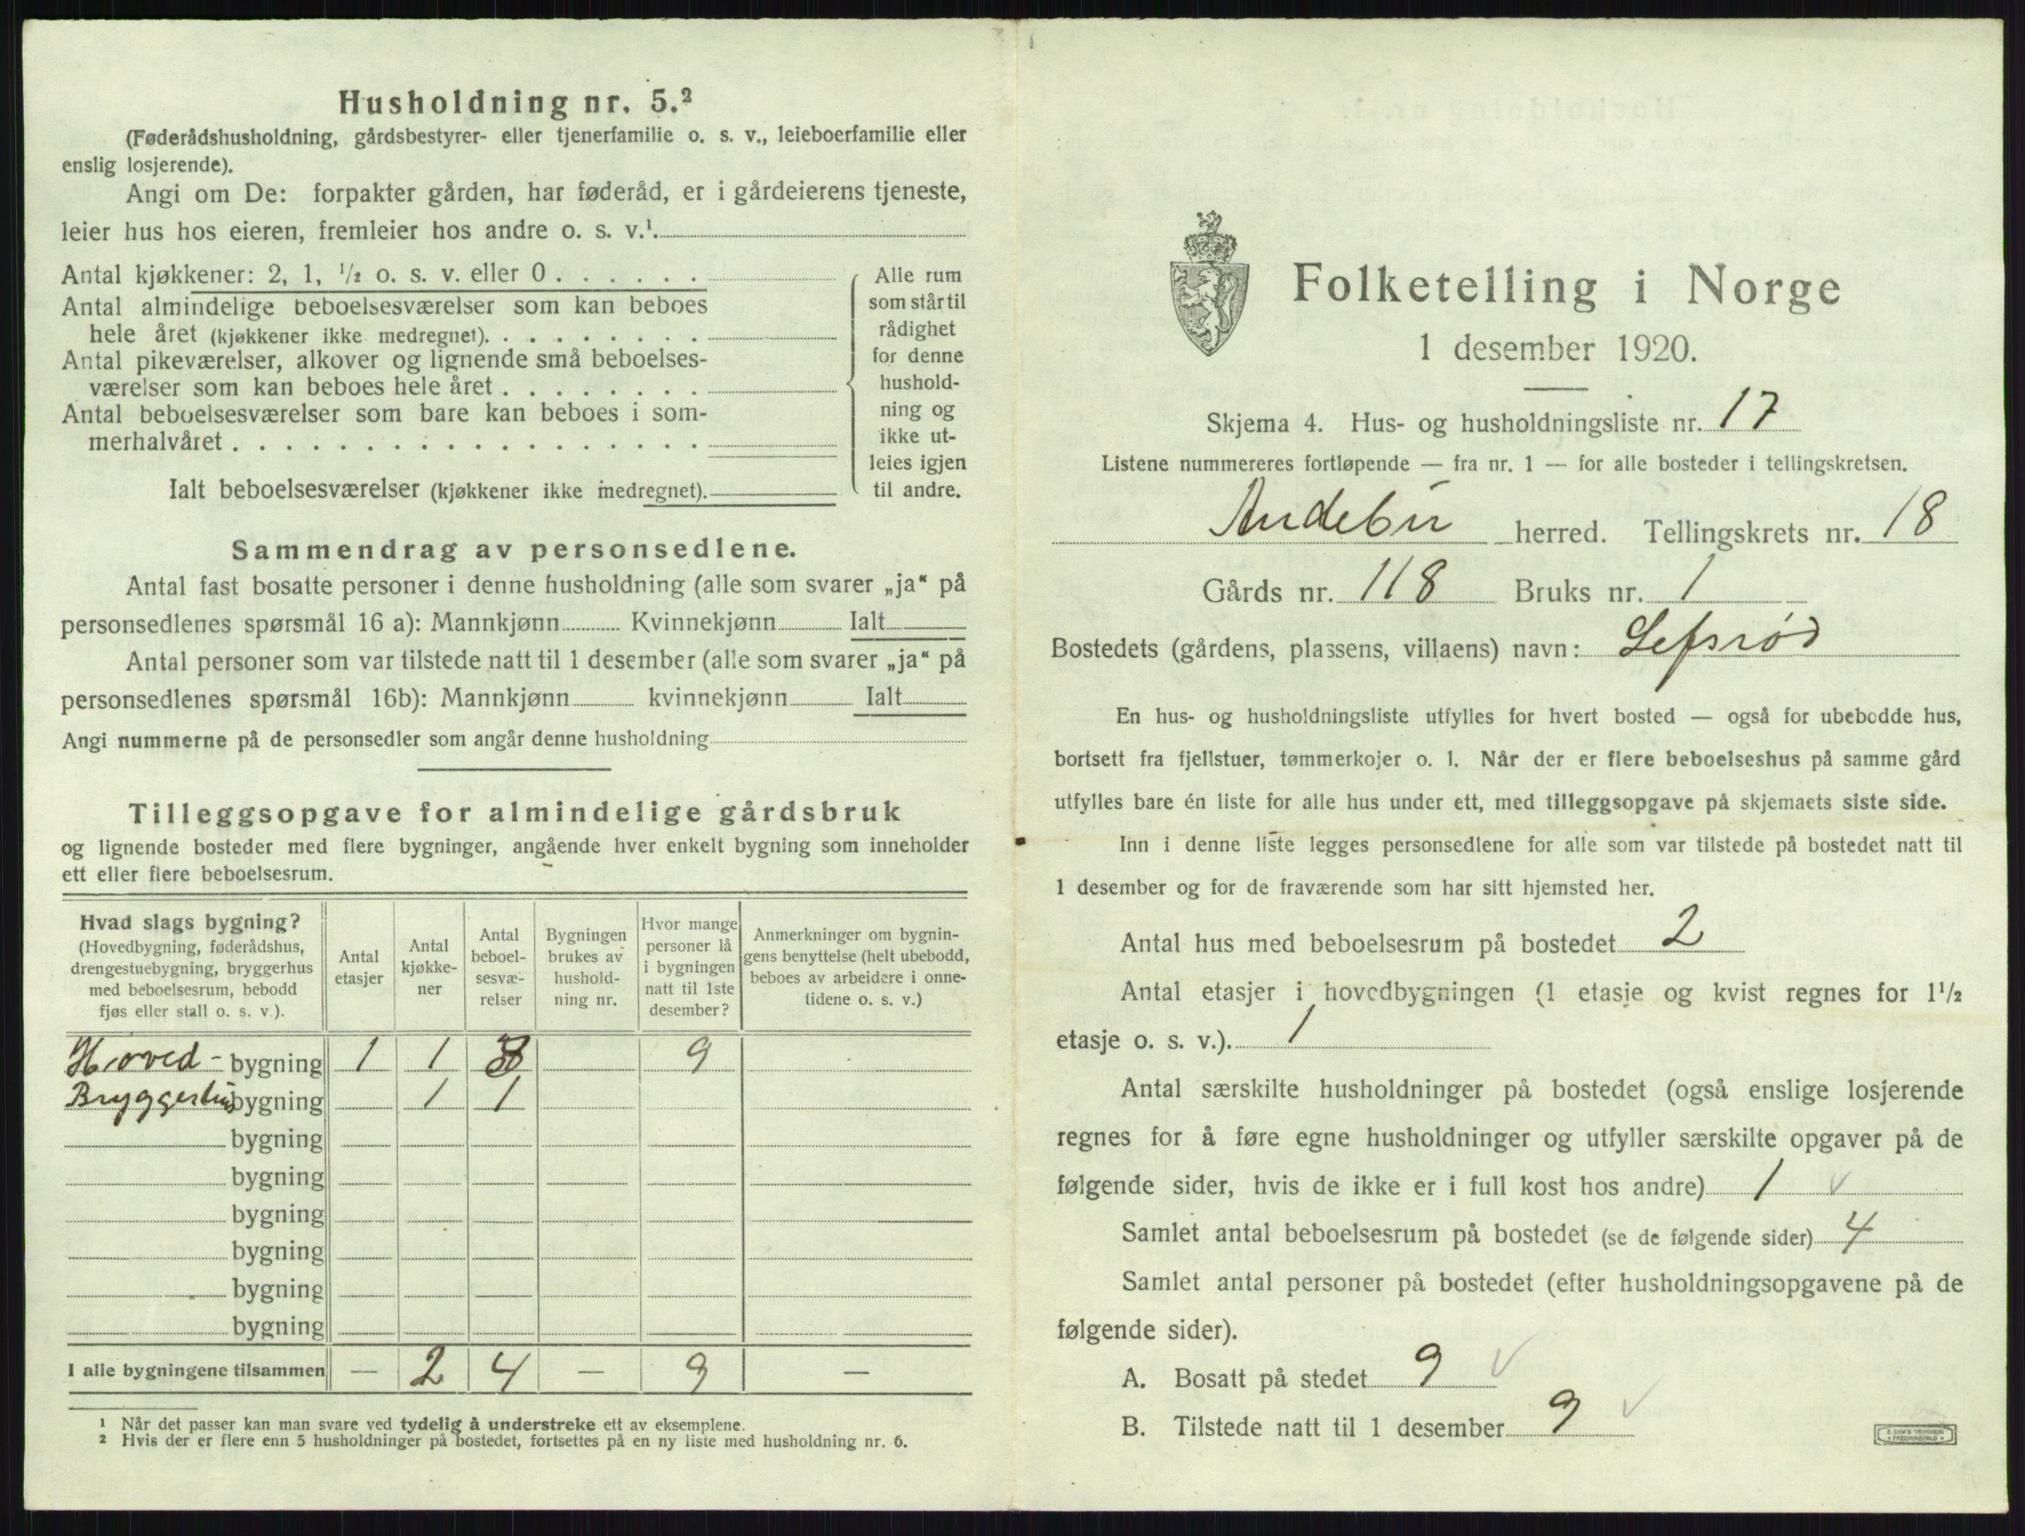 Husholdning nr. 5.²
(Føderådshusholdning, gårdsbestyrer- eller tjenerfamilie o. s. v., leieboerfamilie eller
enslig losjerende).
Angi om De: forpakter gården, har føderåd, er i gårdeierens tjeneste,
leier hus hos eieren, fremleier hos andre o. s. v.¹.
Antal kjøkkener: 2, 1, ½ o. s. v. eller 0 . . . . . .
Antal almindelige beboelsesværelser som kan beboes
hele året (kjøkkener ikke medregnet). . . . . . . . .
Antal pikeværelser, alkover og lignende små beboelses-
værelser som kan beboes hele året . . . . . . . .
Antal beboelsesværelser som bare kan beboes i som-
merhalvåret . . . . . . . . . . . . . . . . . .
Ialt beboelsesværelser (kjøkkener ikke medregnet).
Alle rum
som står til
rådighet
for denne
hushold-
ning og
ikke ut-
leies igjen
til andre.
Sammendrag av personsedlene.
Antal fast bosatte personer i denne husholdning (alle som svarer „ja“ på
personsedlenes spørsmål 16 a): Mannkjønn Kvinnekjønn Ialt
Antal personer som var tilstede natt til 1 desember (alle som svarer „ja“ på
personsedlenes spørsmål 16b): Mannkjønn kvinnekjønn Ialt
Angi nummerne på de personsedler som angår denne husholdning
Tilleggsopgave for almindelige gårdsbruk
og lignende bosteder med flere bygninger, angående hver enkelt bygning som inneholder
ett eller flere beboelsesrum.
Hvad slags bygning?
(Hovedbygning, føderådshus,
drengestuebygning, bryggerhus
med beboelsesrum, bebodd
fjøs eller stall o. s. v.).
Antal
etasjer
Antal
kjøkke-
ner
Antal
beboel-
sesvæ-
relser
Bygningen
brukes av
hushold-
ning nr.
Hvor mange
personer lå
i bygningen
natt til 1ste
desember?
Anmerkninger om bygnin-
gens benyttelse (helt ubebodd,
beboes av arbeidere i onne-
tidene o. s. v.)
Hoved- bygning 1 1 3 9
Bryggerhus bygning 1 1
bygning
bygning
bygning
bygning
bygning
bygning
I alle bygningene tilsammen — 2 4 — 9 —
¹ Når det passer kan man svare ved tydelig å understreke ett av eksemplene.
² Hvis der er flere enn 5 husholdninger på bostedet, fortsettes på en ny liste med husholdning nr. 6.
Folketelling i Norge
1 desember 1920.
Skjema 4. Hus- og husholdningsliste nr. 17
Listene nummereres fortløpende — fra nr. 1 — for alle bosteder i tellingskretsen.
Andebu herred. Tellingskrets nr. 18
Gårds nr. 118 Bruks nr. 1
Bostedets (gårdens, plassens, villaens) navn: Lefsrød
En hus- og husholdningsliste utfylles for hvert bosted — også for ubebodde hus,
bortsett fra fjellstuer, tømmerkojer o. l. Når der er flere beboelseshus på samme gård
utfylles bare én liste for alle hus under ett, med tilleggsopgave på skjemaets siste side.
Inn i denne liste legges personsedlene for alle som var tilstede på bostedet natt til
1 desember og for de fraværende som har sitt hjemsted her.
Antal hus med beboelsesrum på bostedet 2
Antal etasjer i hovedbygningen (1 etasje og kvist regnes for 1½
etasje o. s. v.). 1
Antal særskilte husholdninger på bostedet (også enslige losjerende
regnes for å føre egne husholdninger og utfyller særskilte opgaver på de
følgende sider, hvis de ikke er i full kost hos andre) 1 ✓
Samlet antal beboelsesrum på bostedet (se de følgende sider) 4
Samlet antal personer på bostedet (efter husholdningsopgavene på de
følgende sider).
A. Bosatt på stedet 9 ✓
B. Tilstede natt til 1 desember 9 ✓